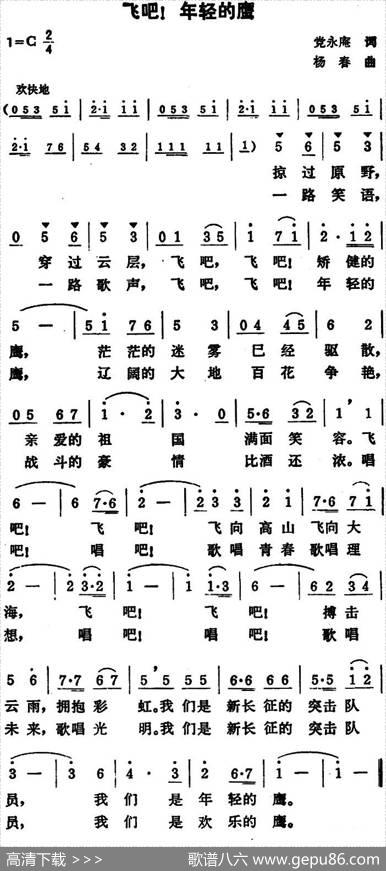 飞吧！年轻的鹰
1=C 2/4
党永庵 词
杨春 曲
欢快地
(053 5i | 2·i ii | 053 5i | 2·i ii | 053 5i |
2·i 76 | 54 32 | 111 11 | 1) 5 6 | 5 3 |
掠过原野，
一路笑语，
0 5 6 | 5 3 | 01 35 | i 7i | 2· i2 |
穿过云层，飞吧，飞吧！矫健的
一路歌声，飞吧，飞吧！年轻的
5 — | 5i 76 | 5 3 | 04 45 | 6 2 |
鹰，茫茫的迷雾已经驱散，
鹰，辽阔的大地百花争艳，
05 67 | i· 2 | 3· 0 | 5·6 32 | 1' i |
亲爱的祖国满面笑容。飞
战斗的豪情比酒还浓。唱
6 — | 6 7·6 | 2 — | 2 33 | 2i | 7·6 7i |
吧！飞吧！飞向高山飞向大
吧！唱吧！歌唱青春歌唱理
2 — | 2 3·2 | i — | i i·3 | 6 — | 62 34 |
海，飞吧！飞吧！搏击
想，唱吧！唱吧！歌唱
5 6 | 7·7 67 | 5' 55 | 6·6 66 | 5·5 i2 |
云雨，拥抱彩虹。我们是新长征的突击队
未来，歌唱光明。我们是新长征的突击队
3 — | 3 6 | 4· 3 | 2 6·7 | i — | i — ‖
员，我们是年轻的鹰。
员，我们是欢乐的鹰。
高清下载 >>>
歌谱八六 www.gepu86.com